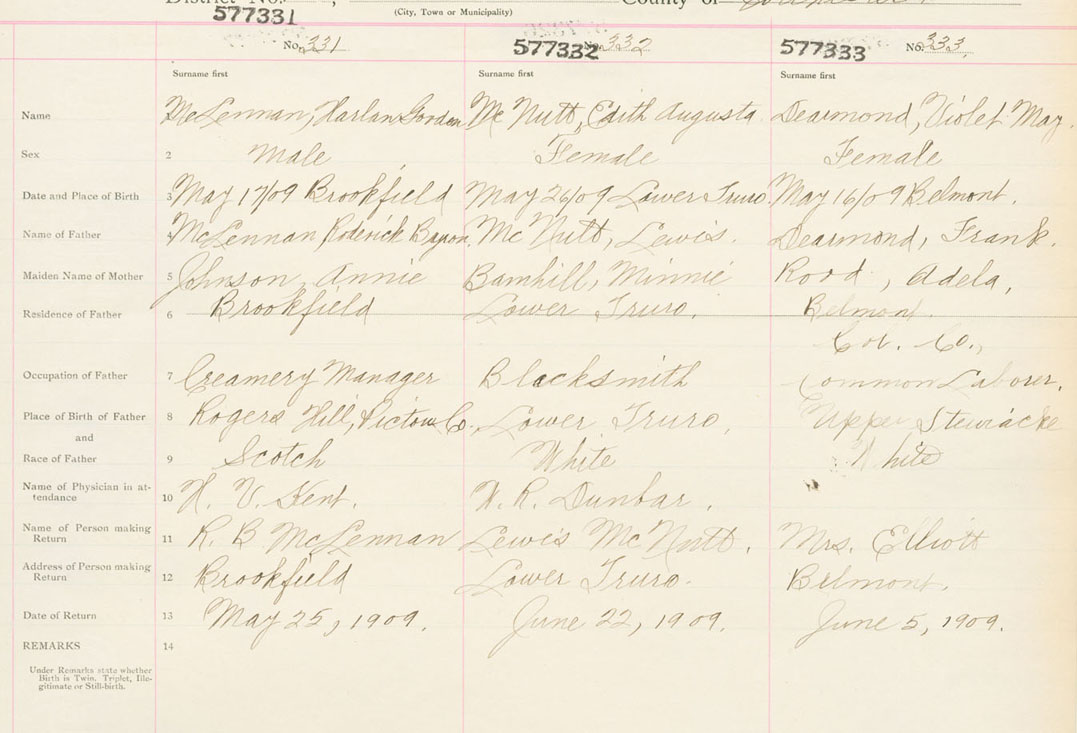 District No. , County of
577331 (City, Town or Municipality)
No. 331 577332 No. 332 577333 No. 333
Surname first Surname first Surname first
Name McLennan, Harlan Gordon Mc Nutt, Edith Augusta. Dearmond, Violet May.
Sex 2 Male Female Female
Date and Place of Birth 3 May 17/09 Brookfield May 26/09 Lower Truro. May 16/09 Belmont.
Name of Father 4 McLennan Roderick Byron, Mc Nutt, Lewis. Dearmond, Frank.
Maiden Name of Mother 5 Johnson, Annie Barnhill, Minnie Rood, Adela,
Residence of Father 6 Brookfield Lower Truro. Belmont.
Col. Co.,
Occupation of Father 7 Creamery Manager Blacksmith Common Laborer.
Place of Birth of Father 8 Rogers Hill, Pictou Co., Lower Truro, Upper Stewiacke
and
Race of Father 9 Scotch White White
Name of Physician in at-
tendance 10 H. V. Kent. W. R. Dunbar.
Name of Person making
Return 11 R. B McLennan Lewis McNutt. Mrs. Elliott
Address of Person making
Return 12 Brookfield Lower Truro. Belmont.
Date of Return 13 May 25, 1909. June 22, 1909. June 5, 1909.
REMARKS 14
Under Remarks state whether
Birth is Twin, Triplet, Ille-
gitimate or Still-birth.